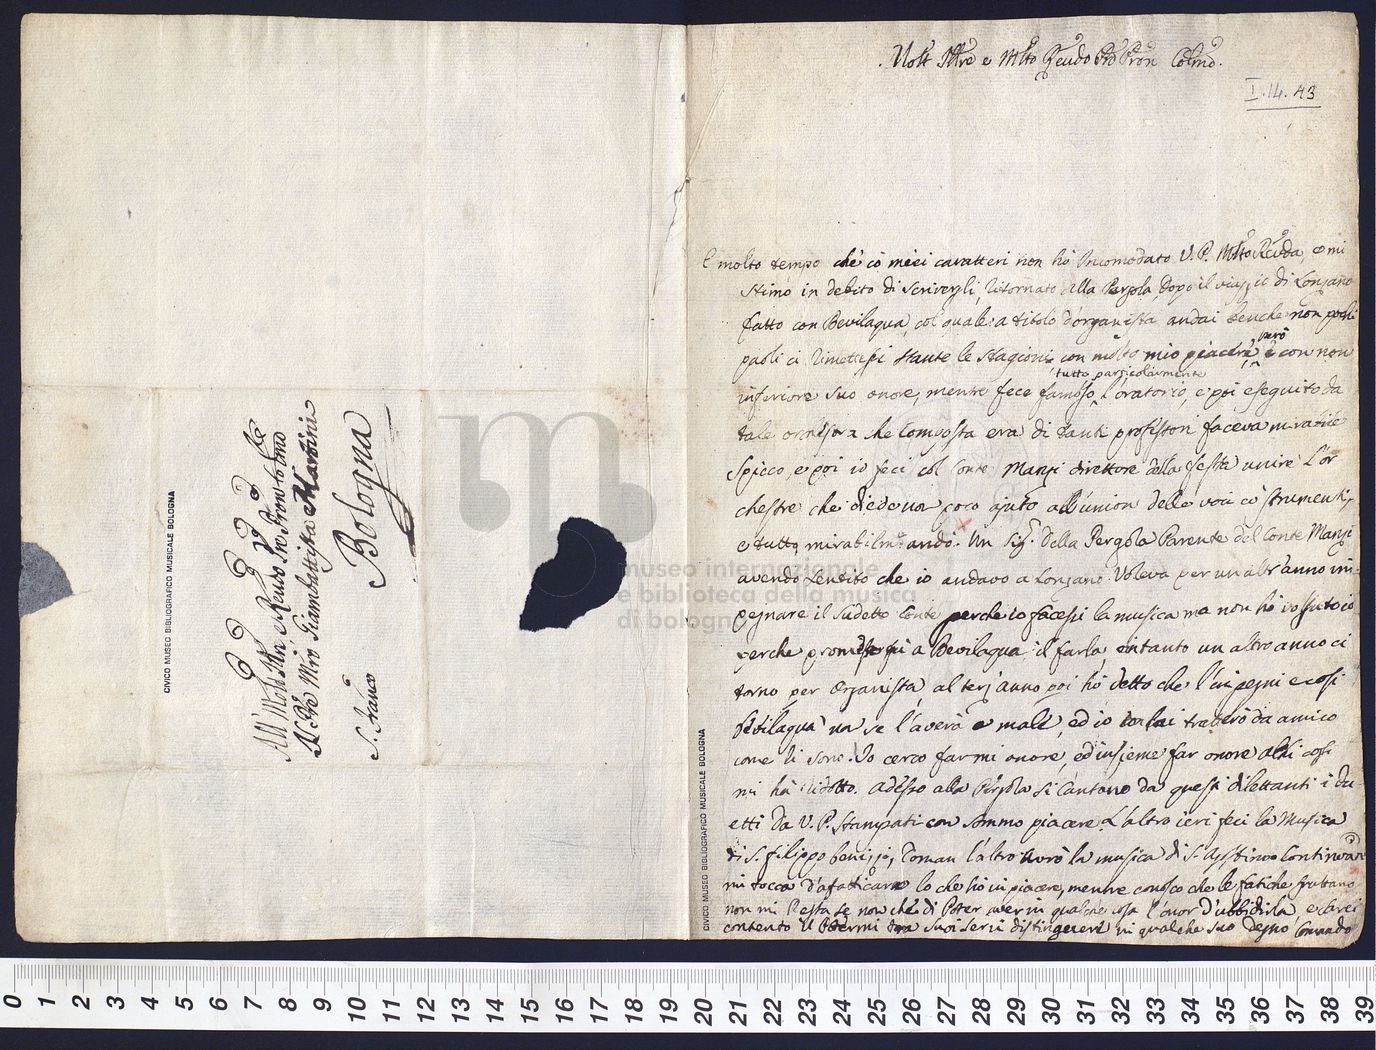 All' Molto
Al Pre Mro Giambattista Martini
S. Franco
Bologna
CIVICO MUSEO BIBLIOGRAFICO MUSICALE BOLOGNA
museo internazionale
e biblioteca della musica
di bologna
Molt Illre e Mlto Revdo Pre Pron Colmo.
I.14.43
È molto tempo che cò miei caratteri non hò Incomodato V. P. Molto Revda, e mi
stimo in debito di scrivergli, ritornato alla Pergola dopo il viaggio di Lonzano
fatto con Bevilaqua, col quale a titolo d'organista andai benche non pochi
paoli ci rimettessi stante le stagioni con molto mio piacere, però è con non
tutto particolarmente
inferiore suo onore, mentre fece famoso l'oratorio, e poi eseguito da
tale orchestra che composta era di tanti professori faceva mirabile
spicco, e poi io feci col Conte Manzi direttore della festa unire l'or
chestre che diedero poco ajuto all'union delle voci cò strumenti,
e tutto mirabilmte andò. Un Sigr della Pergola Parente del Conte Manzi
avendo sentito che io andavo a Lonzano voleva per un altr'anno im-
pegnare il sudetto Conte perche io facessi la musica ma non hò voluto io
perche promesso fù a Bevilaqua il farla, intanto un altro anno ci
torno per organista, al terz'anno poi hò detto che l'impegni e così
Bevilaqua non se l'averà a male, ed io con lui tratterò da amico
come li sono. Io cerco farmi onore, ed insieme far onore a chi così
mi hà ridotto. Adesso alla Pergola si cantano da questi dilettanti i Du-
etti da V. P. stampati con sommo piacere. L'altro ieri feci la Musica
di S. Filippo Benizzi, Doman l'altro avrò la musica di S. continuam
mi tocca d'afaticare lo che hò in piacere, mentre conosco che le fatiche fruttano
non mi resta se non che di Poter aver in qualche cosa l'onor d'ubbidirla, e sarei
contento il Potermi tra suoi servi distinguere in qualche suo degno Comando
CIVICO MUSEO BIBLIOGRAFICO MUSICALE BOLOGNA
0 1 2 3 4 5 6 7 8 9 10 11 12 13 14 15 16 17 18 19 20 21 22 23 24 25 26 27 28 29 30 31 32 33 34 35 36 37 38 39